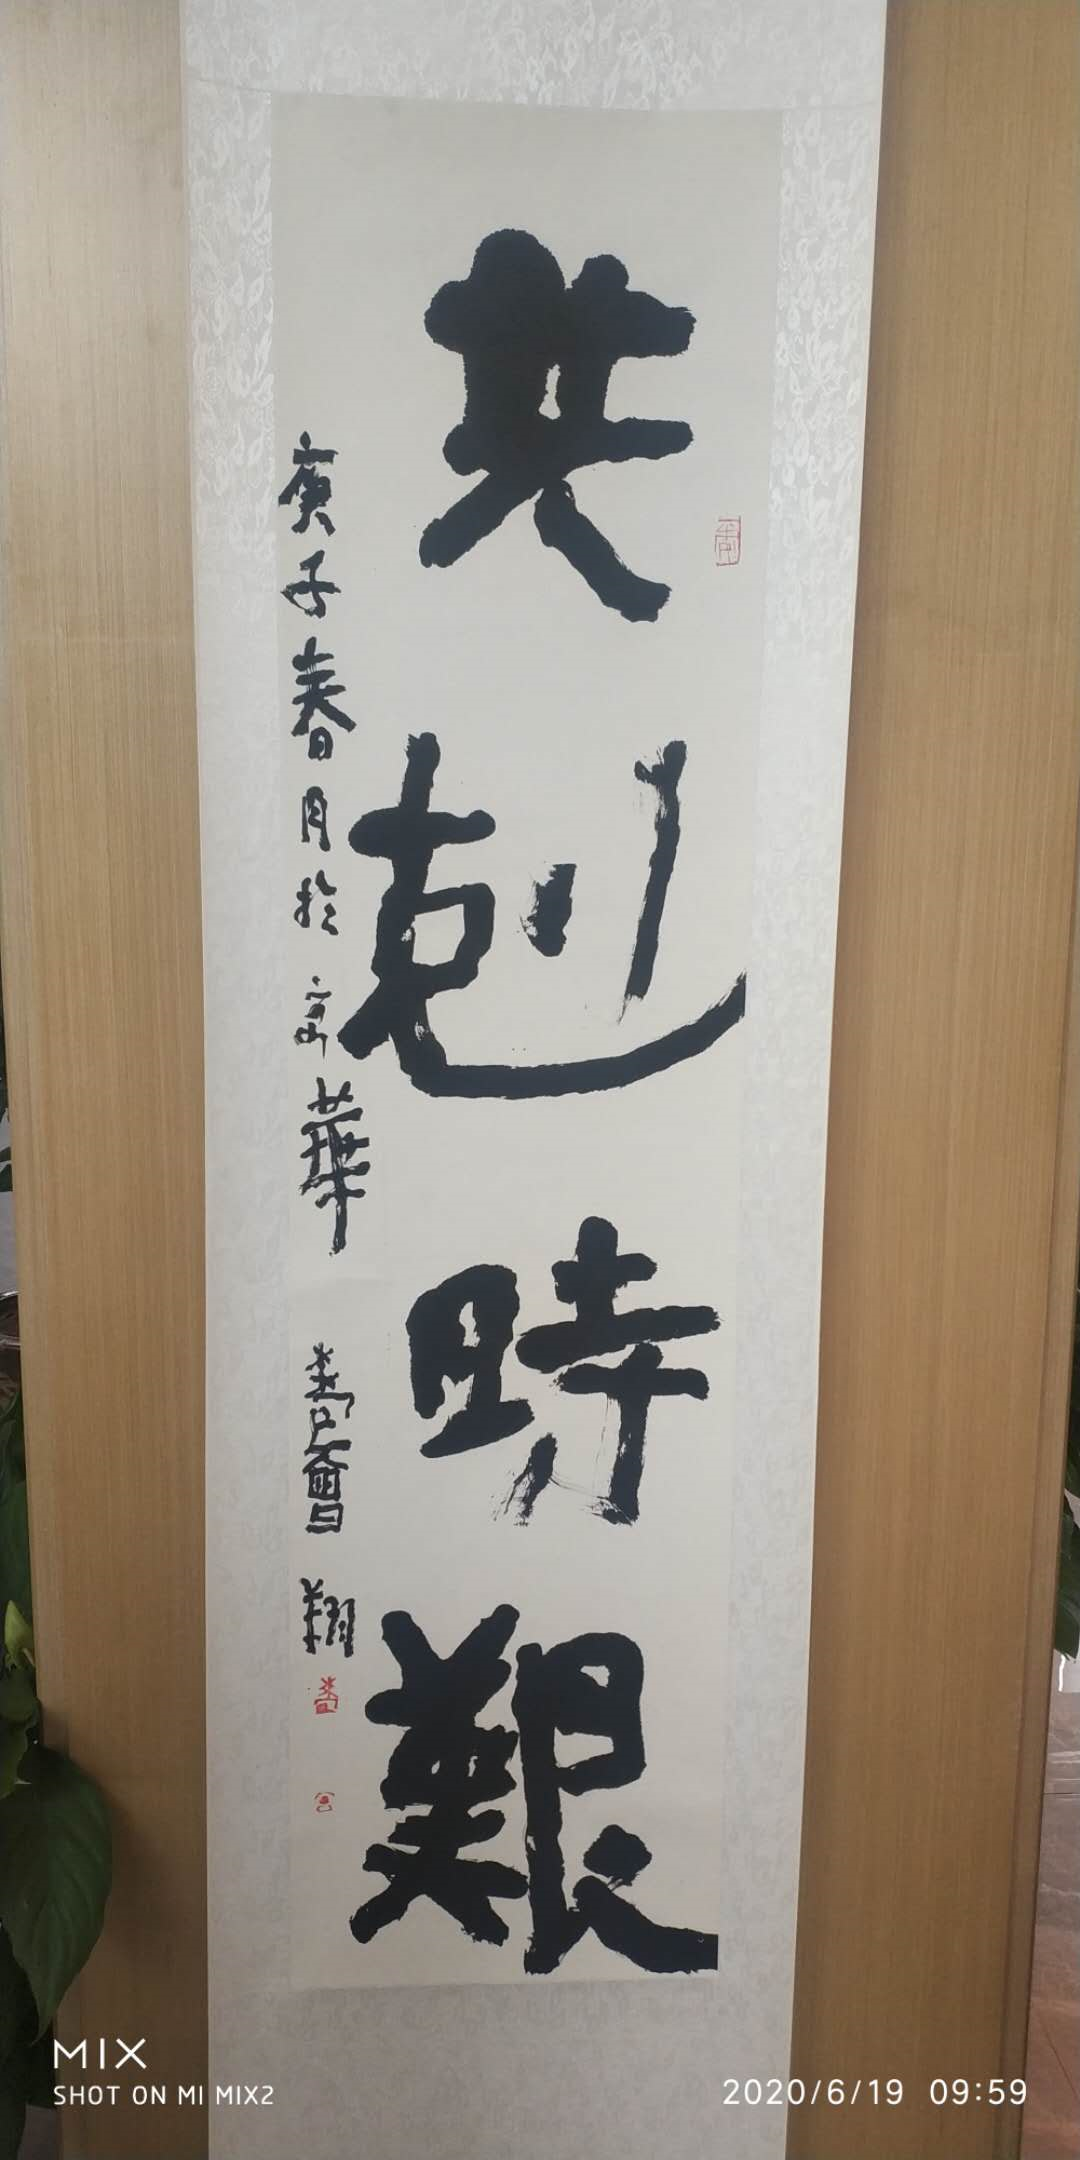 共剋時艱
庚子春月於京華 曾翔
MIX
SHOT ON MI MIX2
2020/6/19 09:59